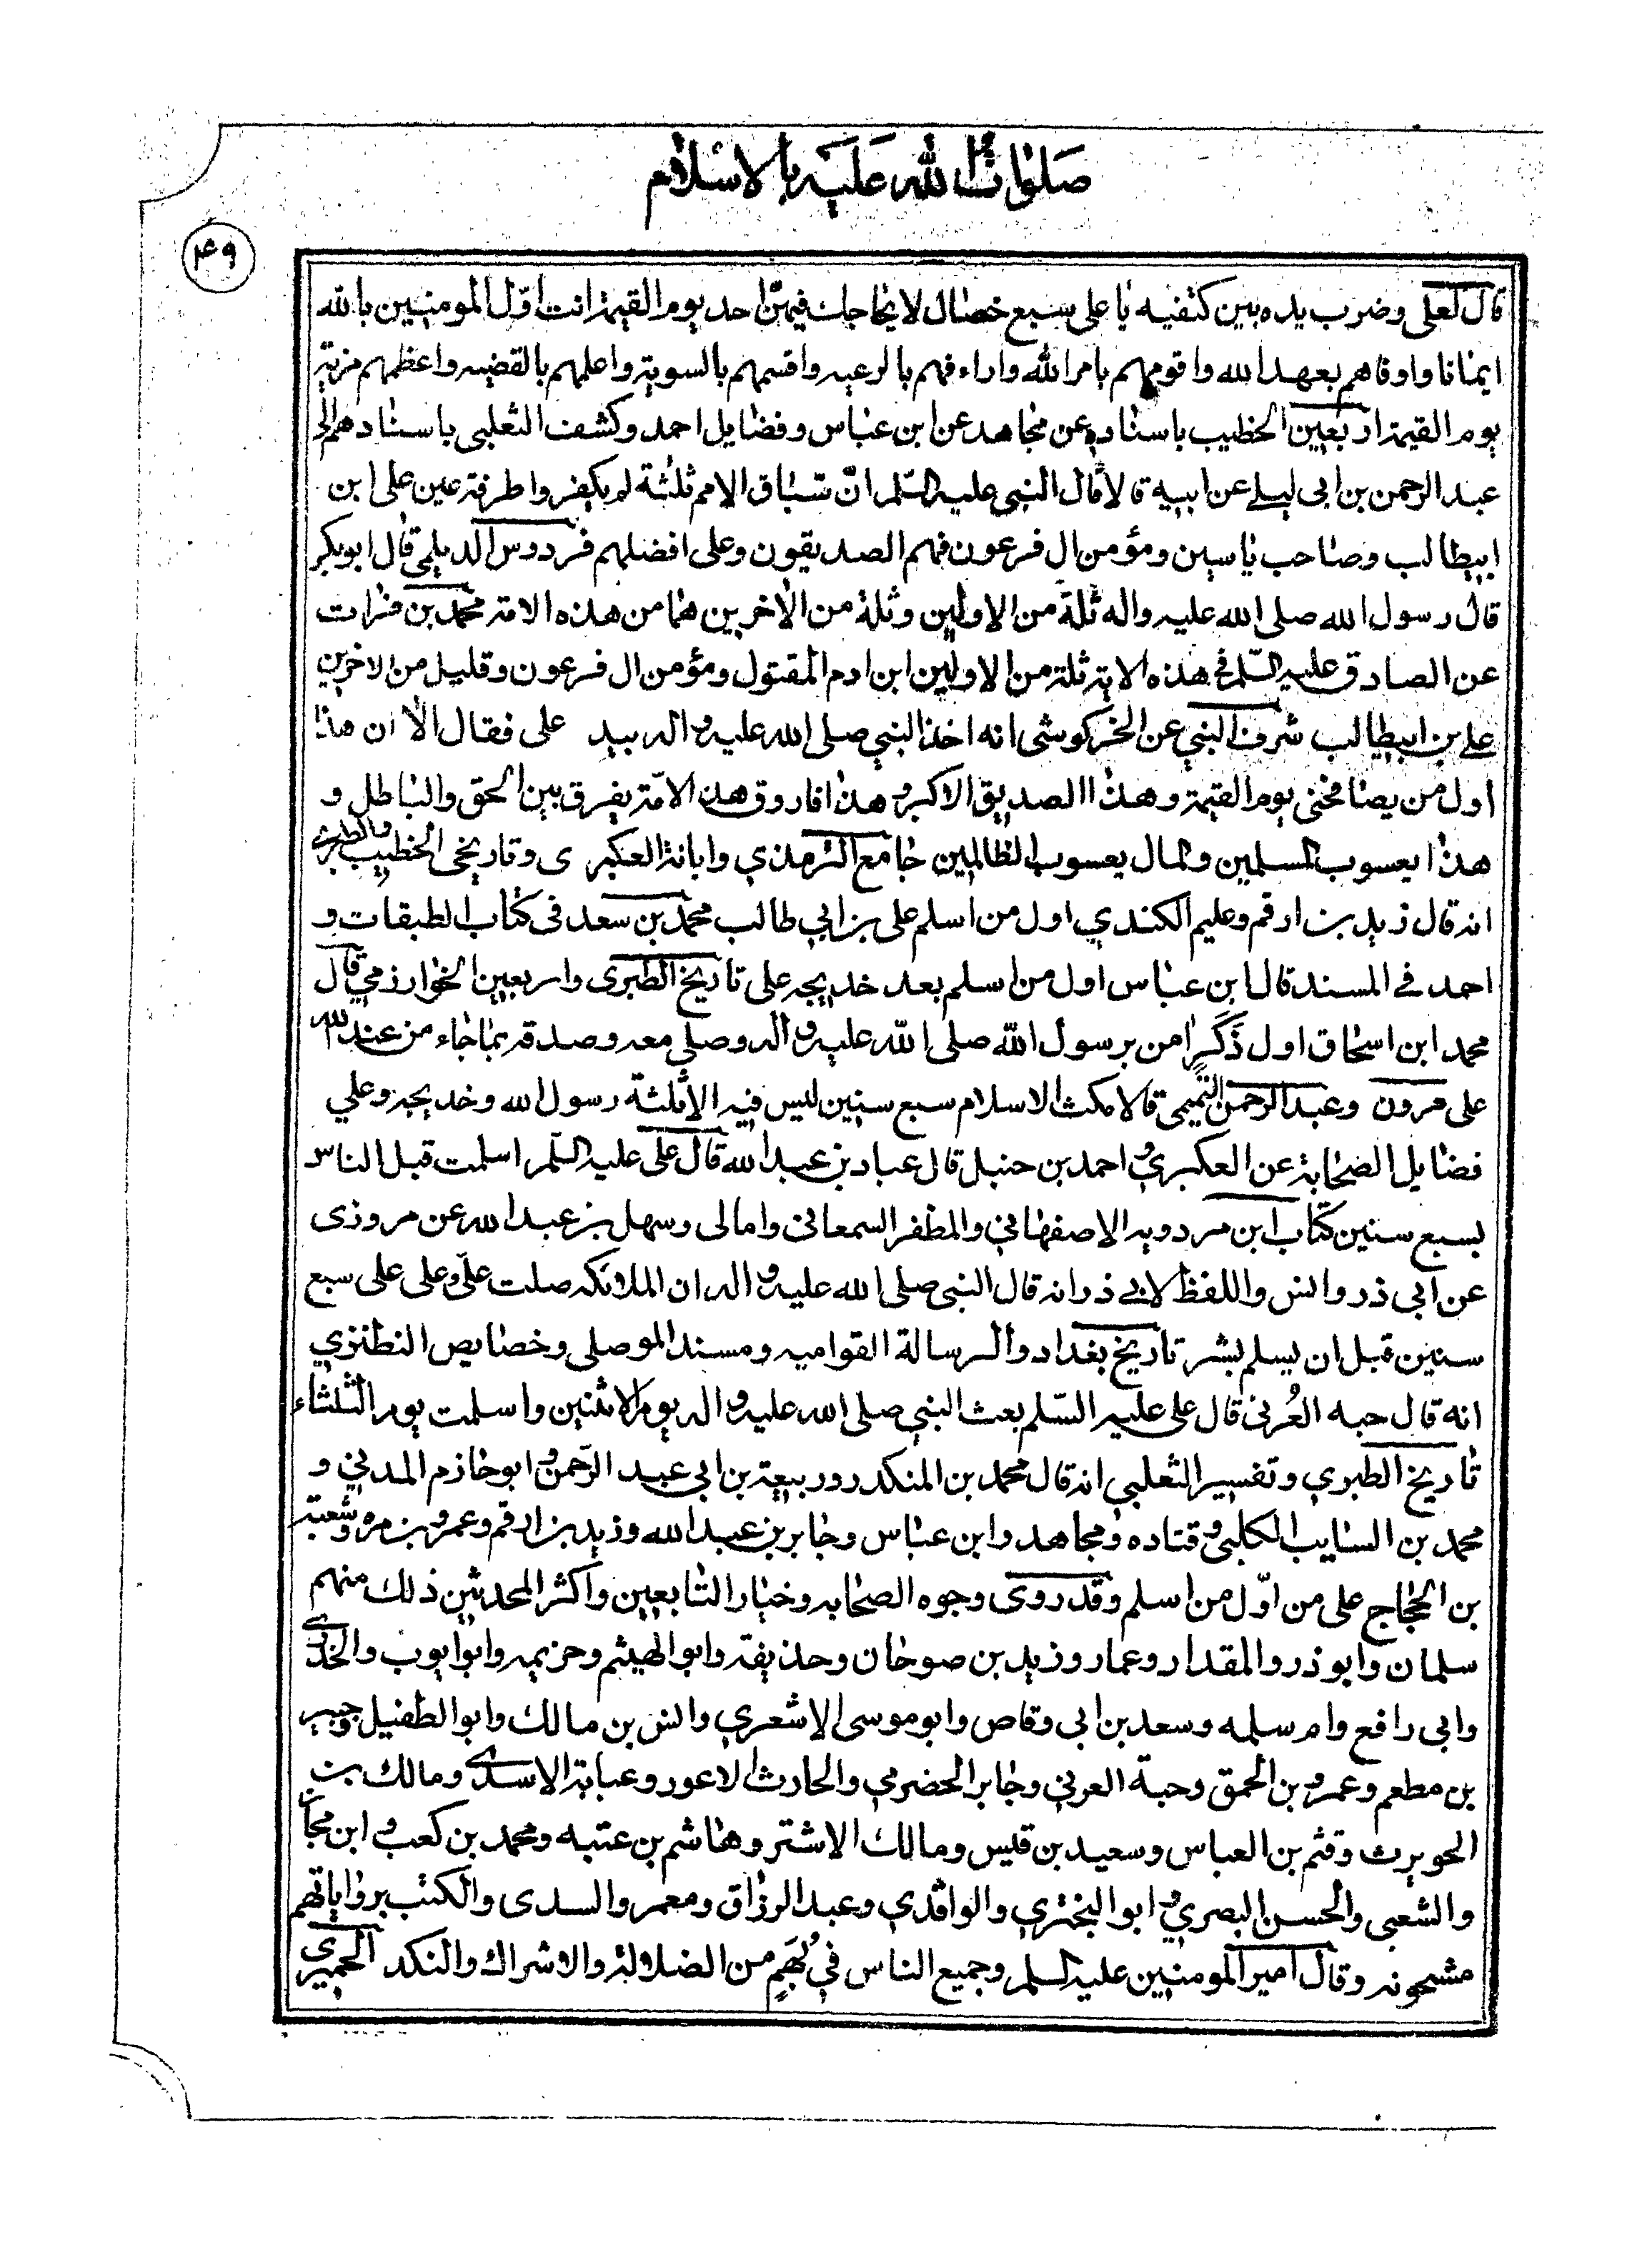 صلوات الله عليه بالاسلام
۴۹
قال لعلى وضرب يده بين كتفيه يا على سبع خصال لا يحاجك فيهن احد يوم القيمة انت اول المومنين بالله
ايمانا واوفاهم بعهد الله واقومهم بامر الله واراءفهم بالرعيه واقسمهم بالسوية واعلمهم بالقضيه واعظمهم مزية
يوم القيمة اربعين الخطيب باسناده عن مجاهد عن ابن عباس وفضايل احمد وكشف الثعلبى باسنادهم الى
عبد الرحمن بن ابى ليلى عن ابيه قالا قال النبى عليه السلم ان سباق الامم ثلثة لم يكفروا طرفة عين على ابن
ابيطالب وصاحب ياسين ومؤمن ال فرعون فهم الصديقون وعلى افضلهم فردوس الديلمى قال ابوبكر
قال رسول الله صلى الله عليه واله ثلة من الاولين وثلة من الاخرين هما من هذه الامة محمد بن فرات
عن الصادق عليه السلم فى هذه الاية ثلة من الاولين ابن ادم المقتول ومؤمن ال فرعون وقليل من الاخرين
على بن ابيطالب شرف النبي عن الخركوشى انه اخذ النبي صلى الله عليه واله بيد على فقال الا ان هذا
اول من يصافحنى يوم القيمة وهذا الصديق الاكبر وهذا فاروق هذه الامة يفرق بين الحق والباطل و
هذا يعسوب المسلمين والمال يعسوب الظالمين جامع الترمذي وابانة العكبرى وتاريخى الخطيب والطبرى
انه قال زيد بن ارقم وعليم الكندي اول من اسلم على بن ابي طالب محمد بن سعد فى كتاب الطبقات و
احمد في المسند قال ابن عباس اول من اسلم بعد خديجه على تاريخ الطبرى واربعين الخوارزمي قال
محمد ابن اسحاق اول ذكر امن برسول الله صلى الله عليه واله وصلى معه وصدقه بما جاء من عند الله
على مروان وعبد الرحمن التميمي قالا مكث الاسلام سبع سنين ليس فيه الا ثلثة رسول الله وخديجه وعلي
فضايل الصحابة عن العكبري واحمد بن حنبل قال عباد بن عبد الله قال على عليه السلم اسلمت قبل الناس
بسبع سنين كتاب ابن مردويه الاصفهاني والمظفر السمعانى وامالى وسهل بن عبد الله عن مروزى
عن ابى ذر وانس واللفظ لابي ذر انه قال النبى صلى الله عليه واله ان الملائكه صلت على وعلى على سبع
سنين قبل ان يسلم بشر تاريخ بغداد والرسالة القواميه ومسند الموصلى وخصايص النطنزي
انه قال حبه العُرنى قال على عليه السلم بعث النبي صلى الله عليه واله يوم الاثنين واسلمت يوم الثلثاء
تاريخ الطبري وتفسير الثعلبي انه قال محمد بن المنكدر وربيعة بن ابي عبد الرحمن وابو حازم المدني و
محمد بن السايب الكلبى وقتاده ومجاهد وابن عباس وجابر بن عبد الله وزيد بن ارقم وعمرو بن مره وشعبة
بن الحجاج على من اول من اسلم وقد روى وجوه الصحابه وخيار التابعين واكثر المحدثين ذلك منهم
سلمان وابو ذر والمقدار وعمار وزيد بن صوحان وحذيفة وابو الهيثم وخزيمه وابو ايوب والخدرى
وابى رافع وام سلمه وسعد بن ابى وقاص وابو موسى الاشعري وانس بن مالك وابو الطفيل وجبير
بن مطعم وعمرو بن الحمق وحبة العرني وجابر الحضرمي والحارث الاعور وعباية الاسدى ومالك بن
الحويرث وقثم بن العباس وسعيد بن قيس ومالك الاشتر وهاشم بن عتبه ومحمد بن كعب وابن مجاز
والشعبى والحسن البصري وابو البختري والواقدي وعبد الرزاق ومعمر والسدى والكتب برواياتهم
مشحونه وقال امير المومنين عليه السلم وجميع الناس في بُهَمٍ من الضلالة والاشراك والنكد الحميرى